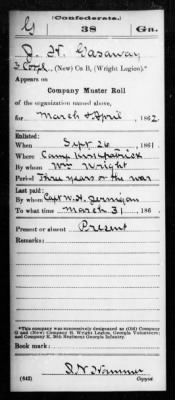 (Confederate.)
G 38 Ga.
D. H. Gazaway
3 Corpl., (New) Co B, (Wright Legion).*
Appears on
Company Muster Roll
of the organization named above,
for March & April, 1862
Enlisted:
When Sept 26, 1861.
Where Camp Kirkpatrick
By whom Wm Wright
Period Three years or the war
Last paid:
By whom Capt W. H. Jernigan
To what time March 31, 186 .
Present or absent Present
Remarks:
*This company was successively designated as (Old) Company
G and (New) Company B, Wright Legion, Georgia Volunteers;
and Company K, 38th Regiment Georgia Infantry.
Book mark:
(642)
Copyist